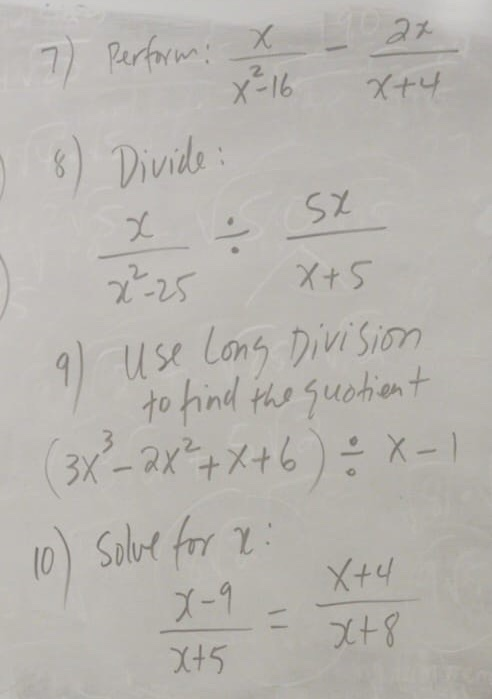 7) Perform: x/(x²-16) - 2x/(x+4)
8) Divide:
x/(x²-25) ÷ 5x/(x+5)
9) Use Long Division
to find the quotient
(3x³-2x²+x+6) ÷ x-1
10) Solve for x:
(x-9)/(x+5) = (x+4)/(x+8)